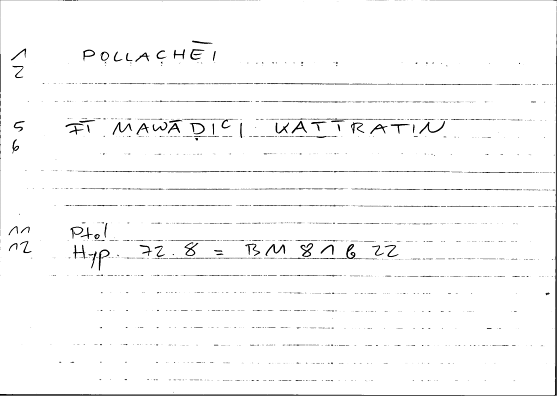 1 POLLACHĒI
2
5 FĪ MAWĀḌICI KATTRATIN
6
11 Ptol
12 Hyp. 72.8 = BM 81622